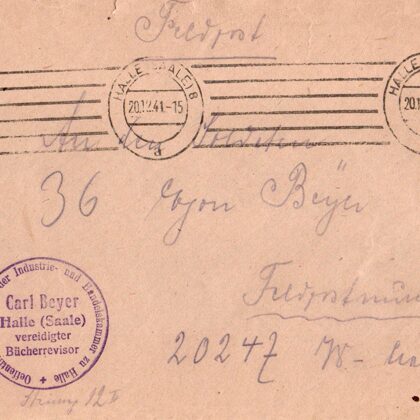 Feldpost
HALLE (SAALE) 8
20.12.41.-15
d
HALLE
20.1
An den Soldaten
36 Egon Beyer
Industrie- und Handelskammer zu Halle
Carl Beyer
Halle (Saale)
vereidigter
Bücherrevisor
Feldpostnum
20247